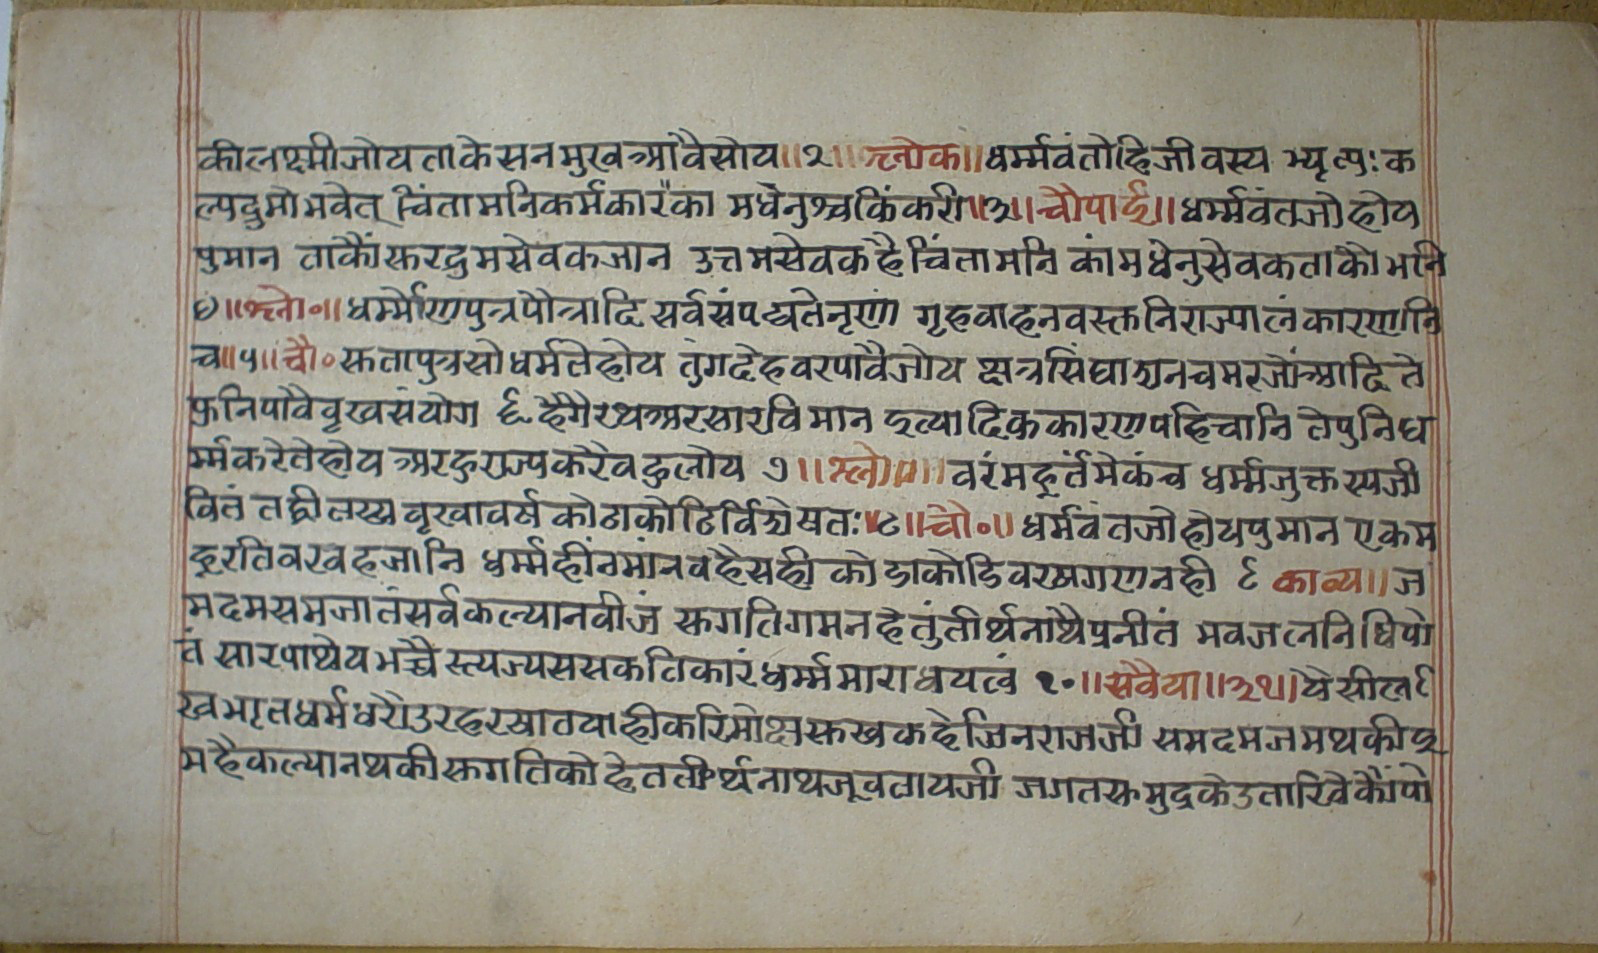 कीलक्ष्मीजोय ताके सनमुख आवै सोय ॥२॥ श्लोक ॥ धर्म्मवंतो हि जीवस्य भ्यृत्यः क
ल्पद्रुमो भवेत् चिंतामनि कर्मकारैका मधेनुश्च किंकरी ॥३॥ चौपाई ॥ धर्म्मवंत जो होय
पुमान ताकौं सुरद्रुम सेवक जान उत्तम सेवक है चिंतामनि कांमधेनु सेवक ताको भनि
४ ॥ श्लो० ॥ धर्म्मेण पुत्रपौत्रादि सर्व संपद्यते नृणां गृहवाहनवस्तुनि राज्यालंकारणानि
च ॥५॥ चौ० सुता पुत्र सो धर्म ते होय तुंग देह वर पावै जोय छत्र सिंघाशन चमर जों आदि ते
फुनि पावै वृख संयोग ६ है गै रथ अर सार विमान इत्यादिक कारण पहिचानि ते पुनि ध
र्म्म करे ते होय अरदु राज्य करै वदु लोय ७ ॥ श्लो० ॥ वरं मदूर्तमेकं च धर्म्मजुक्तस्य जी
वितं तद्वीनस्य वृखा वर्ष कोटाकोटिर्विशेषतः ॥८॥ चौ० ॥ धर्मवंत जो होय पुमान एक म
दूरति वर वह जानि धर्म्महींन मांनव है सही कोडाकोडि वरष गण नही ९ काव्य ॥ ज
मदमसमजातं सर्वकल्यानवीजं सुगतिगमनहेतुं तीर्थनाथै प्रनीतं भवजलनिधिपो
तं सारपाथेय मच्चै स्त्यज्य ससकतिकारं धर्म्ममाराधय त्वं १० ॥ सवैया ॥३१॥ ये सील
ख भृत धर्म धरौ उर हरखात याही करि मोक्ष सुख कहे जिनराजजी समदमजमथ की पू
म है कल्यान थकी सुगति को हेत तीर्थनाथजू वतायजी जगत समुद्र के उतारिवे कौं पो